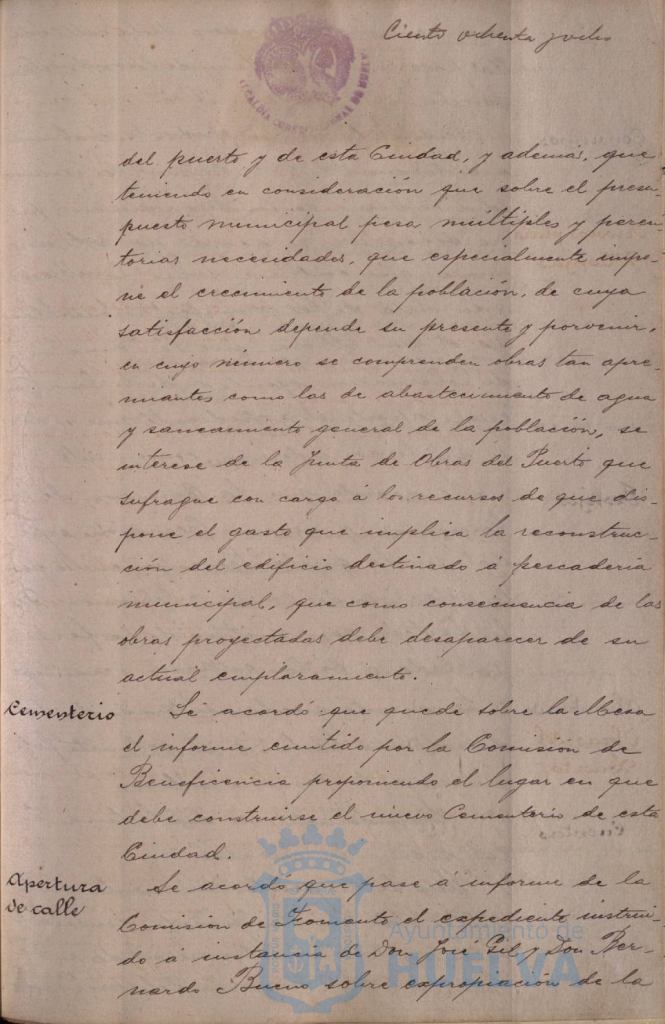 Ciento ochenta y ocho
ALCALDIA CONSTITUCIONAL DE HUELVA
del puerto y de esta Ciudad, y además, que
teniendo en consideración que sobre el presu-
puesto municipal pesa múltiples y peren-
torias necesidades, que especialmente impo-
ne el crecimiento de la población, de cuya
satisfacción depende su presente y porvenir,
en cuyo número se comprenden obras tan apre-
miantes como las de abastecimiento de agua
y saneamiento general de la población, se
interese de la Junta de Obras del Puerto que
sufrague con cargo á los recursos de que dis-
pone el gasto que implica la reconstruc-
ción del edificio destinado á pescaderia
municipal, que como consecuencia de las
obras proyectadas debe desaparecer de su
actual emplazamiento.
Cementerio
Se acordó que quede sobre la Mesa
el informe emitido por la Comisión de
Beneficencia proponiendo el lugar en que
debe construirse el nuevo Cementerio de esta
Ciudad.
Apertura
de calle
Se acordó que pase á informe de la
Comisión de Fomento el expediente instrui-
do á instancia de Don José Gil y Don Ber-
nardo Bueno sobre expropiación de la
Ayuntamiento de
HUELVA